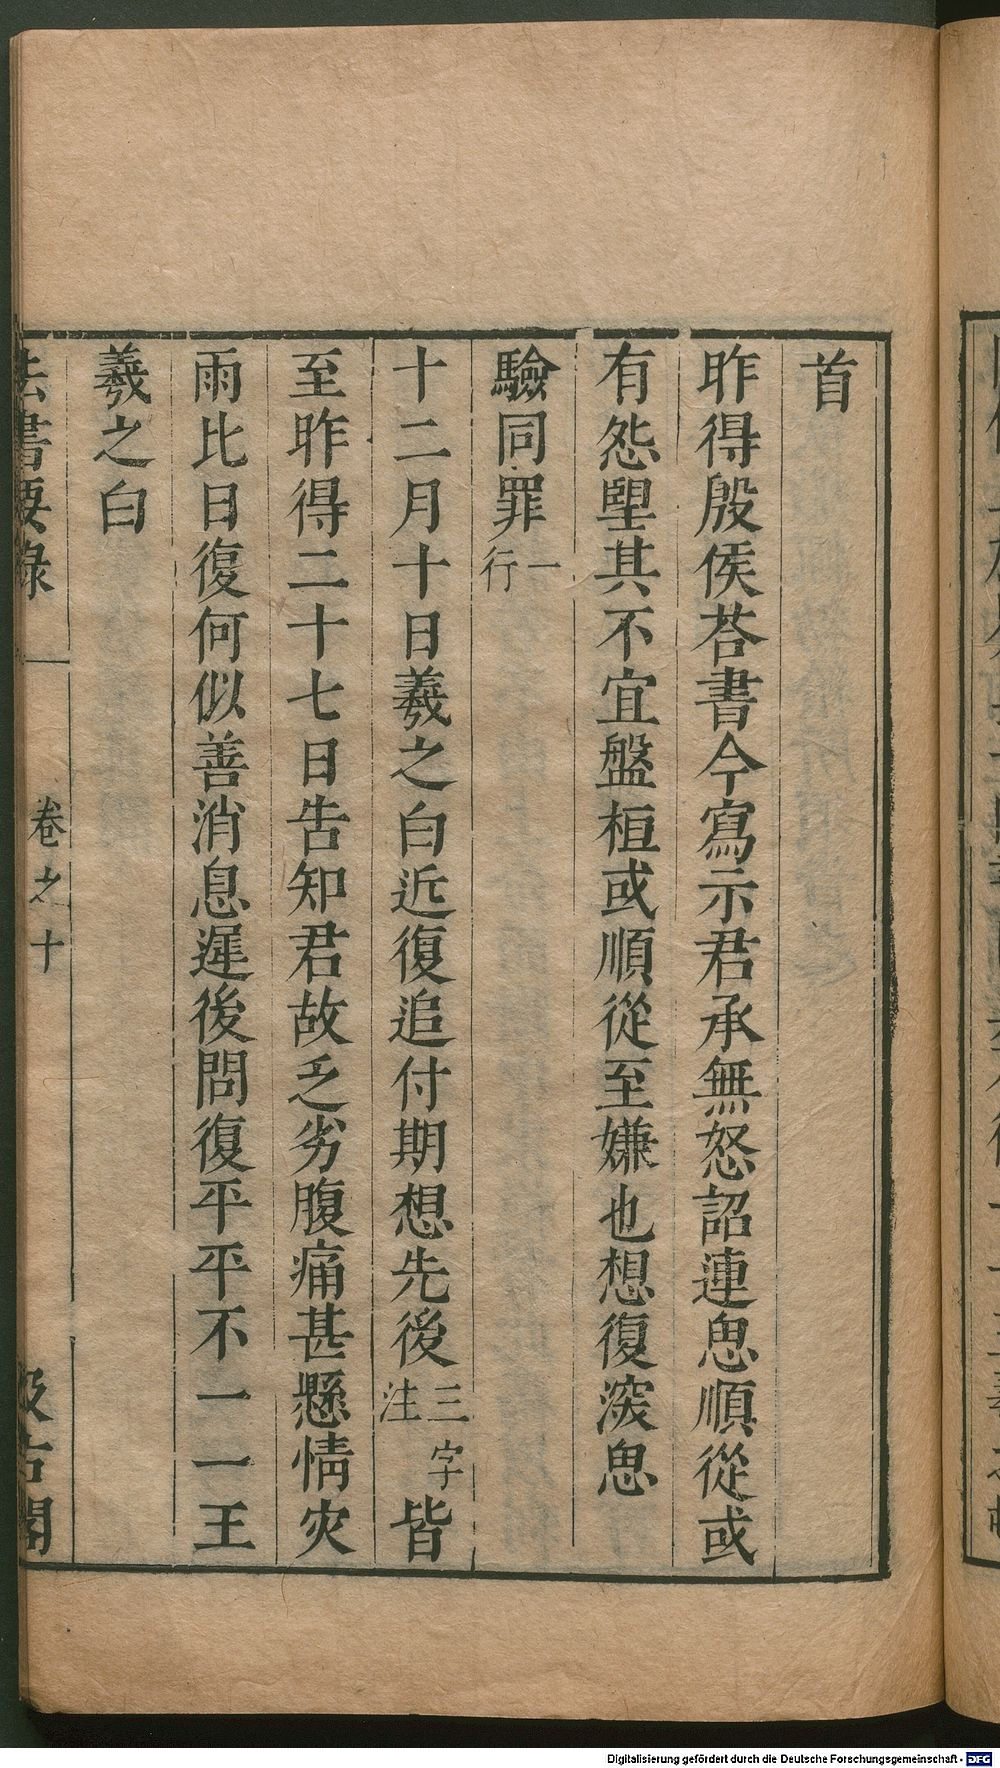 首
昨得殷侯荅書今寫示君承無怒詔連思順從或
有怨朢其不宜盤桓或順從至嫌也想復深思
驗同罪一行
十二月十日羲之白近復追付期想先後三字注皆
至昨得二十七日告知君故乏劣腹痛甚懸情灾
雨比日復何似善消息遲後問復平平不一一王
羲之白
法書要錄 卷之十 汲古閣
Digitalisierung gefördert durch die Deutsche Forschungsgemeinschaft - DFG